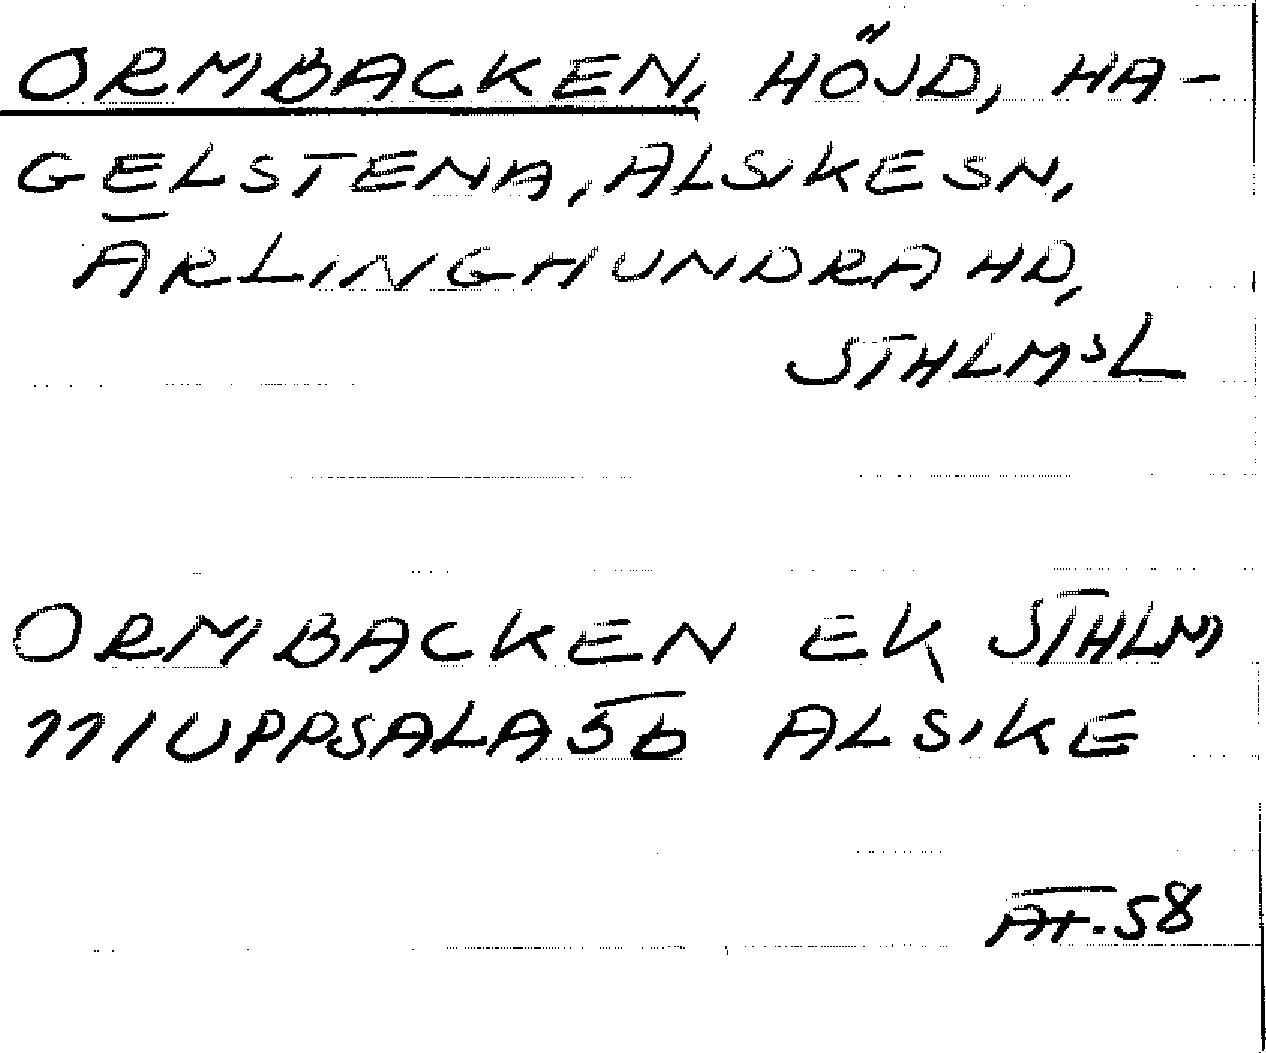 ORMBACKEN, HÖJD, HA-
GELSTENA, ALSIKE SN,
ÄRLINGHUNDRA HD,
STHLMS L
ORMBACKEN EK STHLM
111 UPPSALA 5b ALSIKE
AT. 58